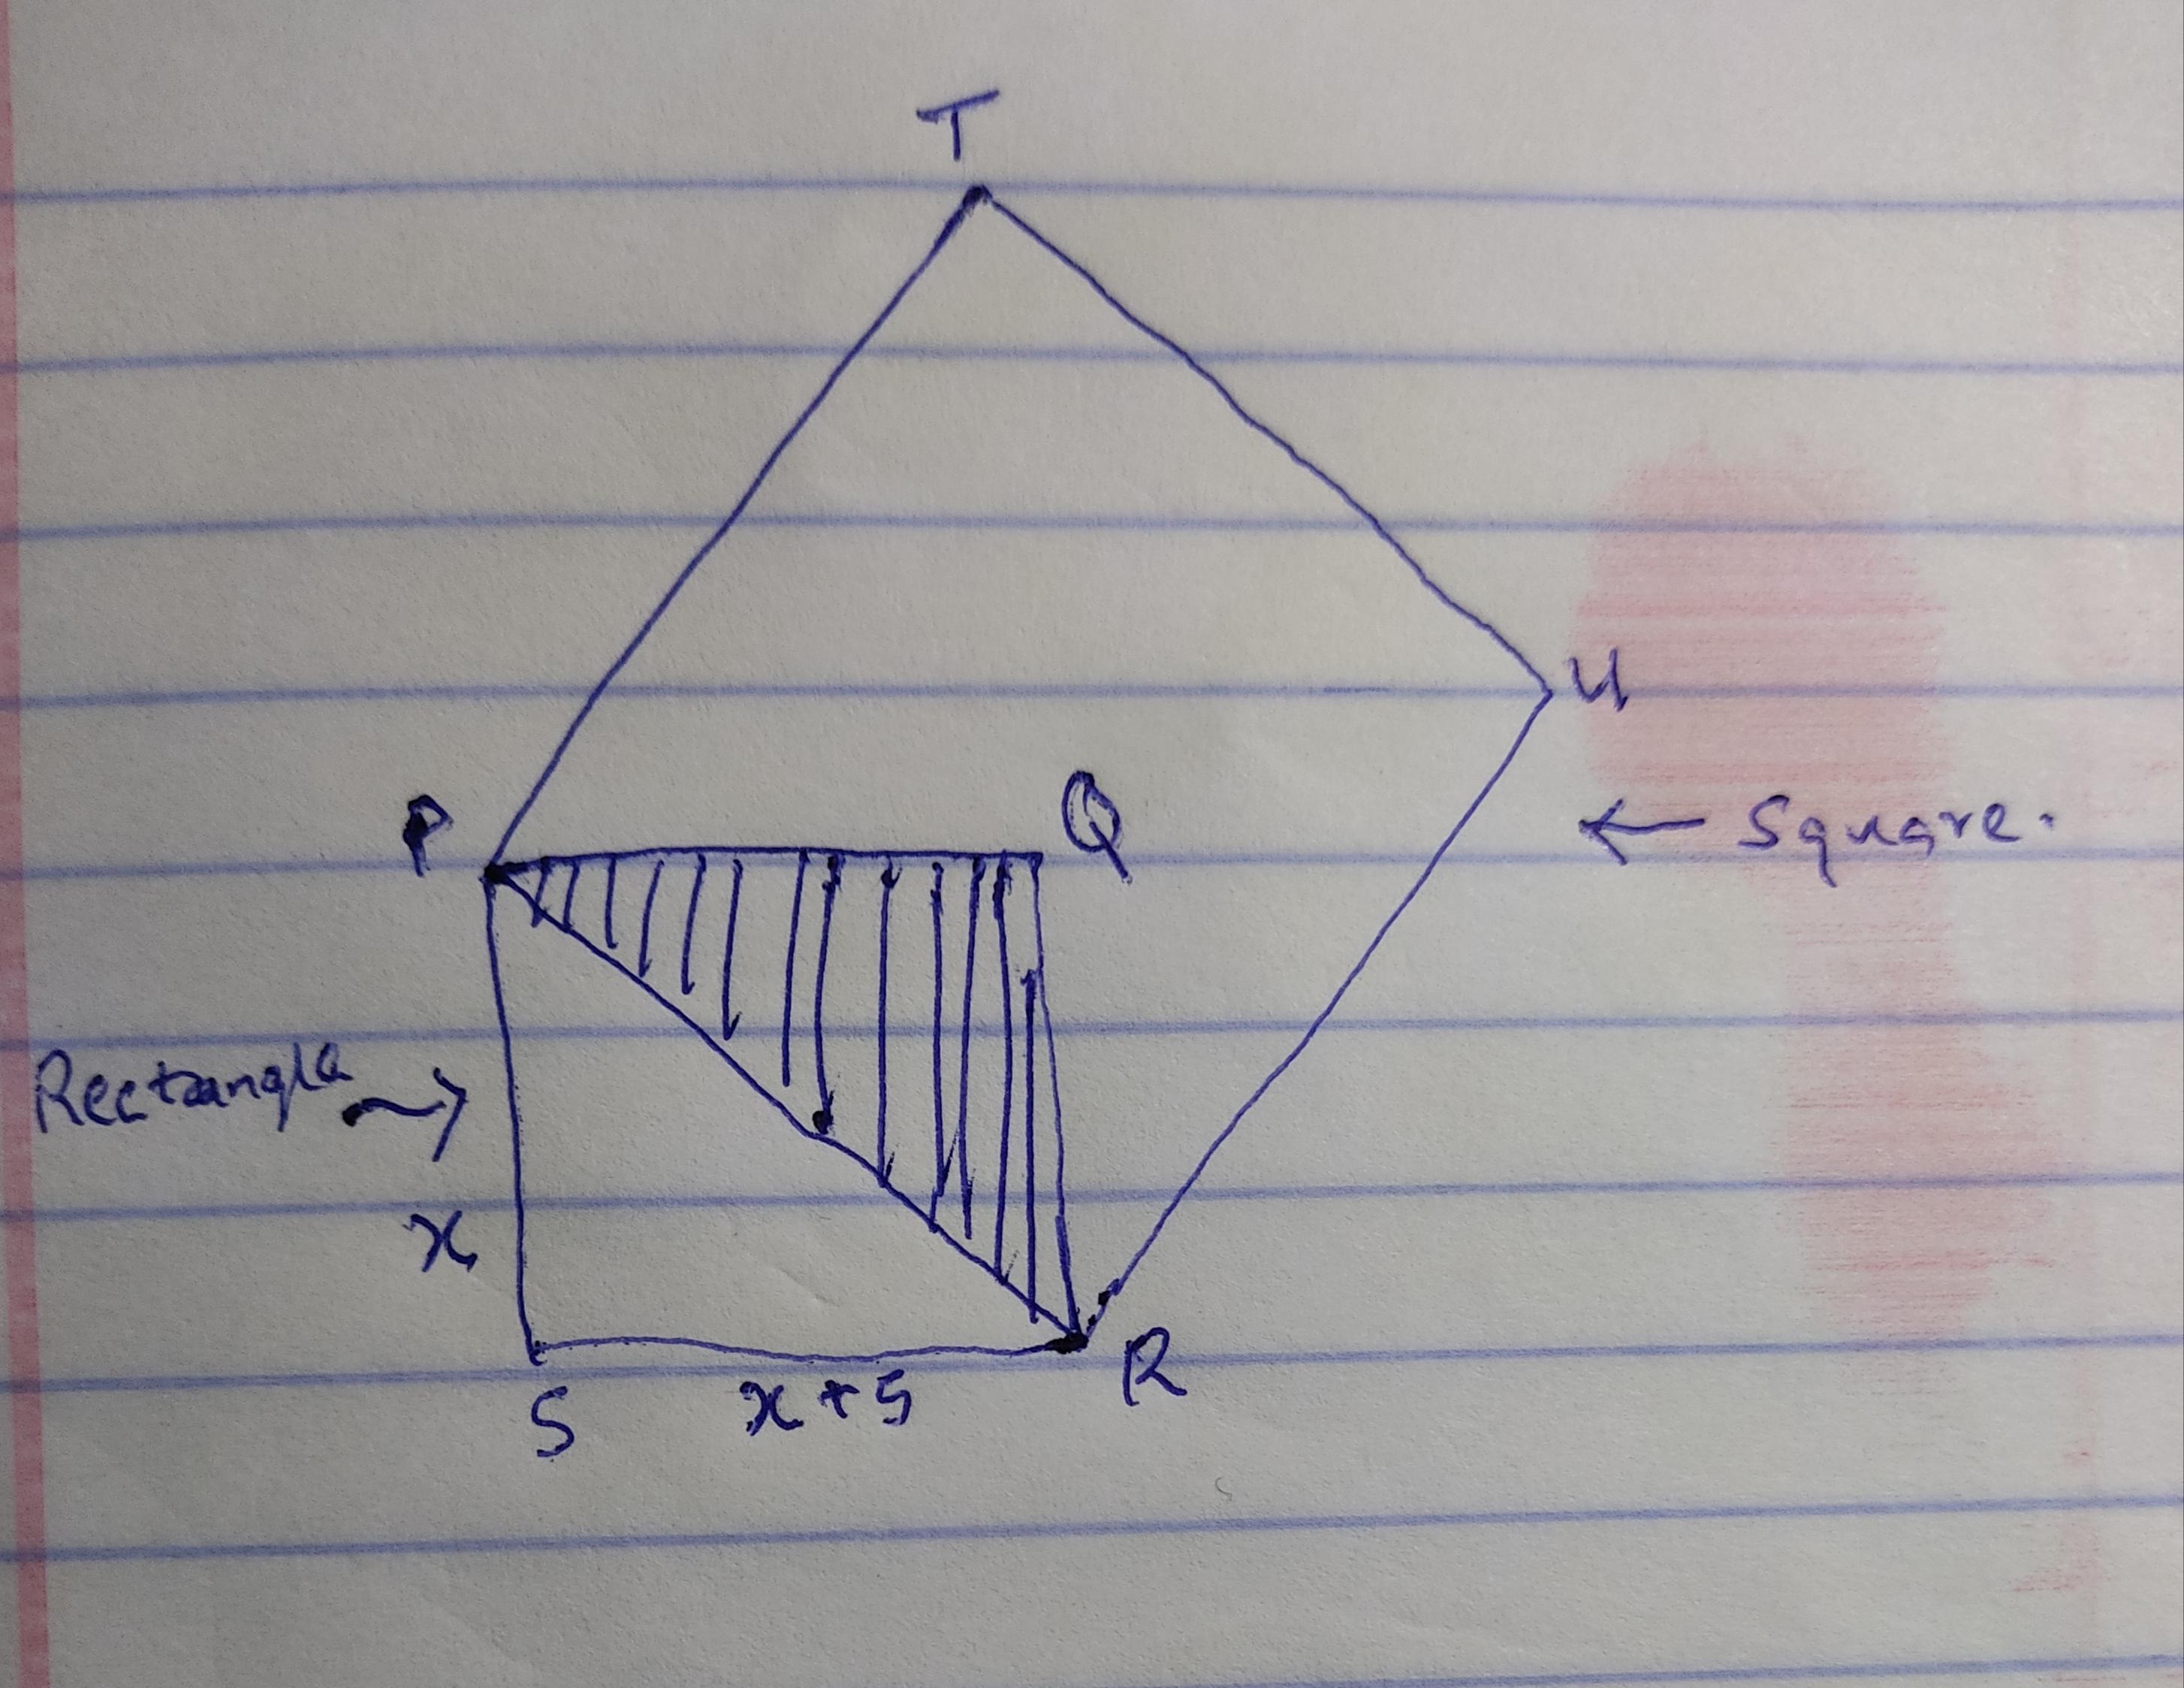 T
U
P
Q
← Square.
Rectangle →
x
S
x+5
R